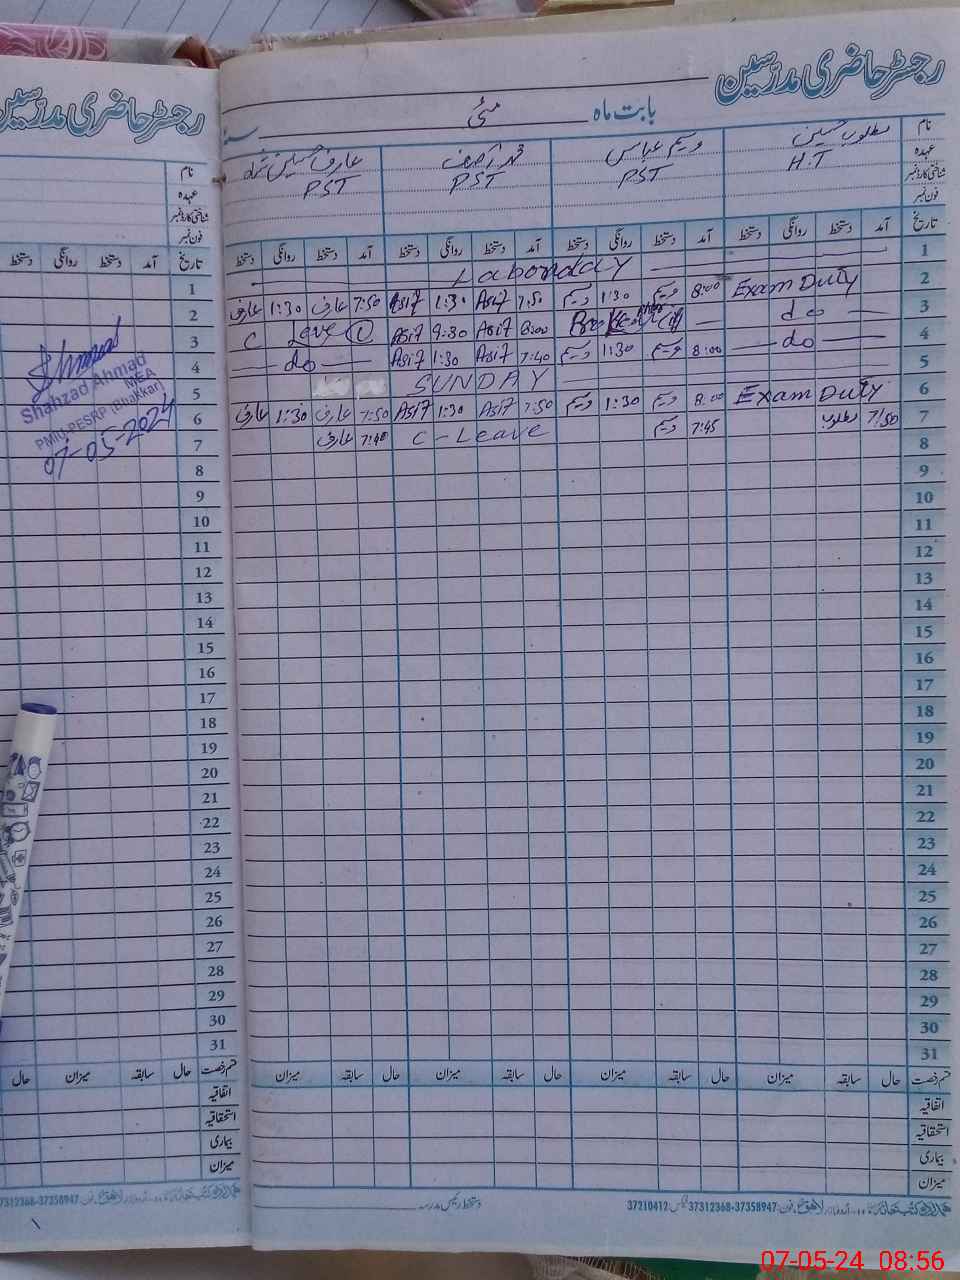 رجسٹر حاضری مدرسین
بابت ماہ مئی
نام مطلوب حسین وسیم عباس محمد آصف عارف حسین
عہدہ H.T PST PST PST
شناختی کارڈ نمبر
فون نمبر
تاریخ آمد دستخط روانگی دستخط آمد دستخط روانگی دستخط آمد دستخط روانگی دستخط آمد دستخط روانگی دستخط
1 Labourday
2 Exam Duty 8:00 وسیم 1:30 وسیم 7:50 Asif 1:30 Asif 7:50 عارف 1:30 عارف
3 do 8:00 Asif 9:30 Asif C Leave
4 do 8:00 وسیم 1:30 وسیم 7:40 Asif 1:30 Asif do
5 SUNDAY
6 Exam Duty 8:00 وسیم 1:30 وسیم 7:50 Asif 1:30 Asif 7:50 عارف 1:30 عارف
7 7:50 مطلوب 7:45 وسیم C-Leave 7:40 عارف
8
9
10
11
12
13
14
15
16
17
18
19
20
21
22
23
24
25
26
27
28
29
30
31
قسم رخصت حال سابقہ میزان حال سابقہ میزان حال سابقہ میزان حال سابقہ میزان
اتفاقیہ
استحقاقیہ
بیماری
میزان
فون: 37358947-37312368 فیکس: 37210412
دستخط رئیس مدرسہ
رجسٹر حاضری مدرسین
نام
عہدہ
شناختی کارڈ نمبر
فون نمبر
تاریخ آمد دستخط روانگی دستخط
1
2
3
4
5
6
7
8
9
10
11
12
13
14
15
16
17
18
19
20
21
22
23
24
25
26
27
28
29
30
31
Shahzad Ahmad
MEA
PMIU-PESRP (Bhakkar)
07-05-2024
قسم رخصت حال سابقہ میزان حال
اتفاقیہ
استحقاقیہ
بیماری
میزان
37312368-37358947
07-05-24 08:56